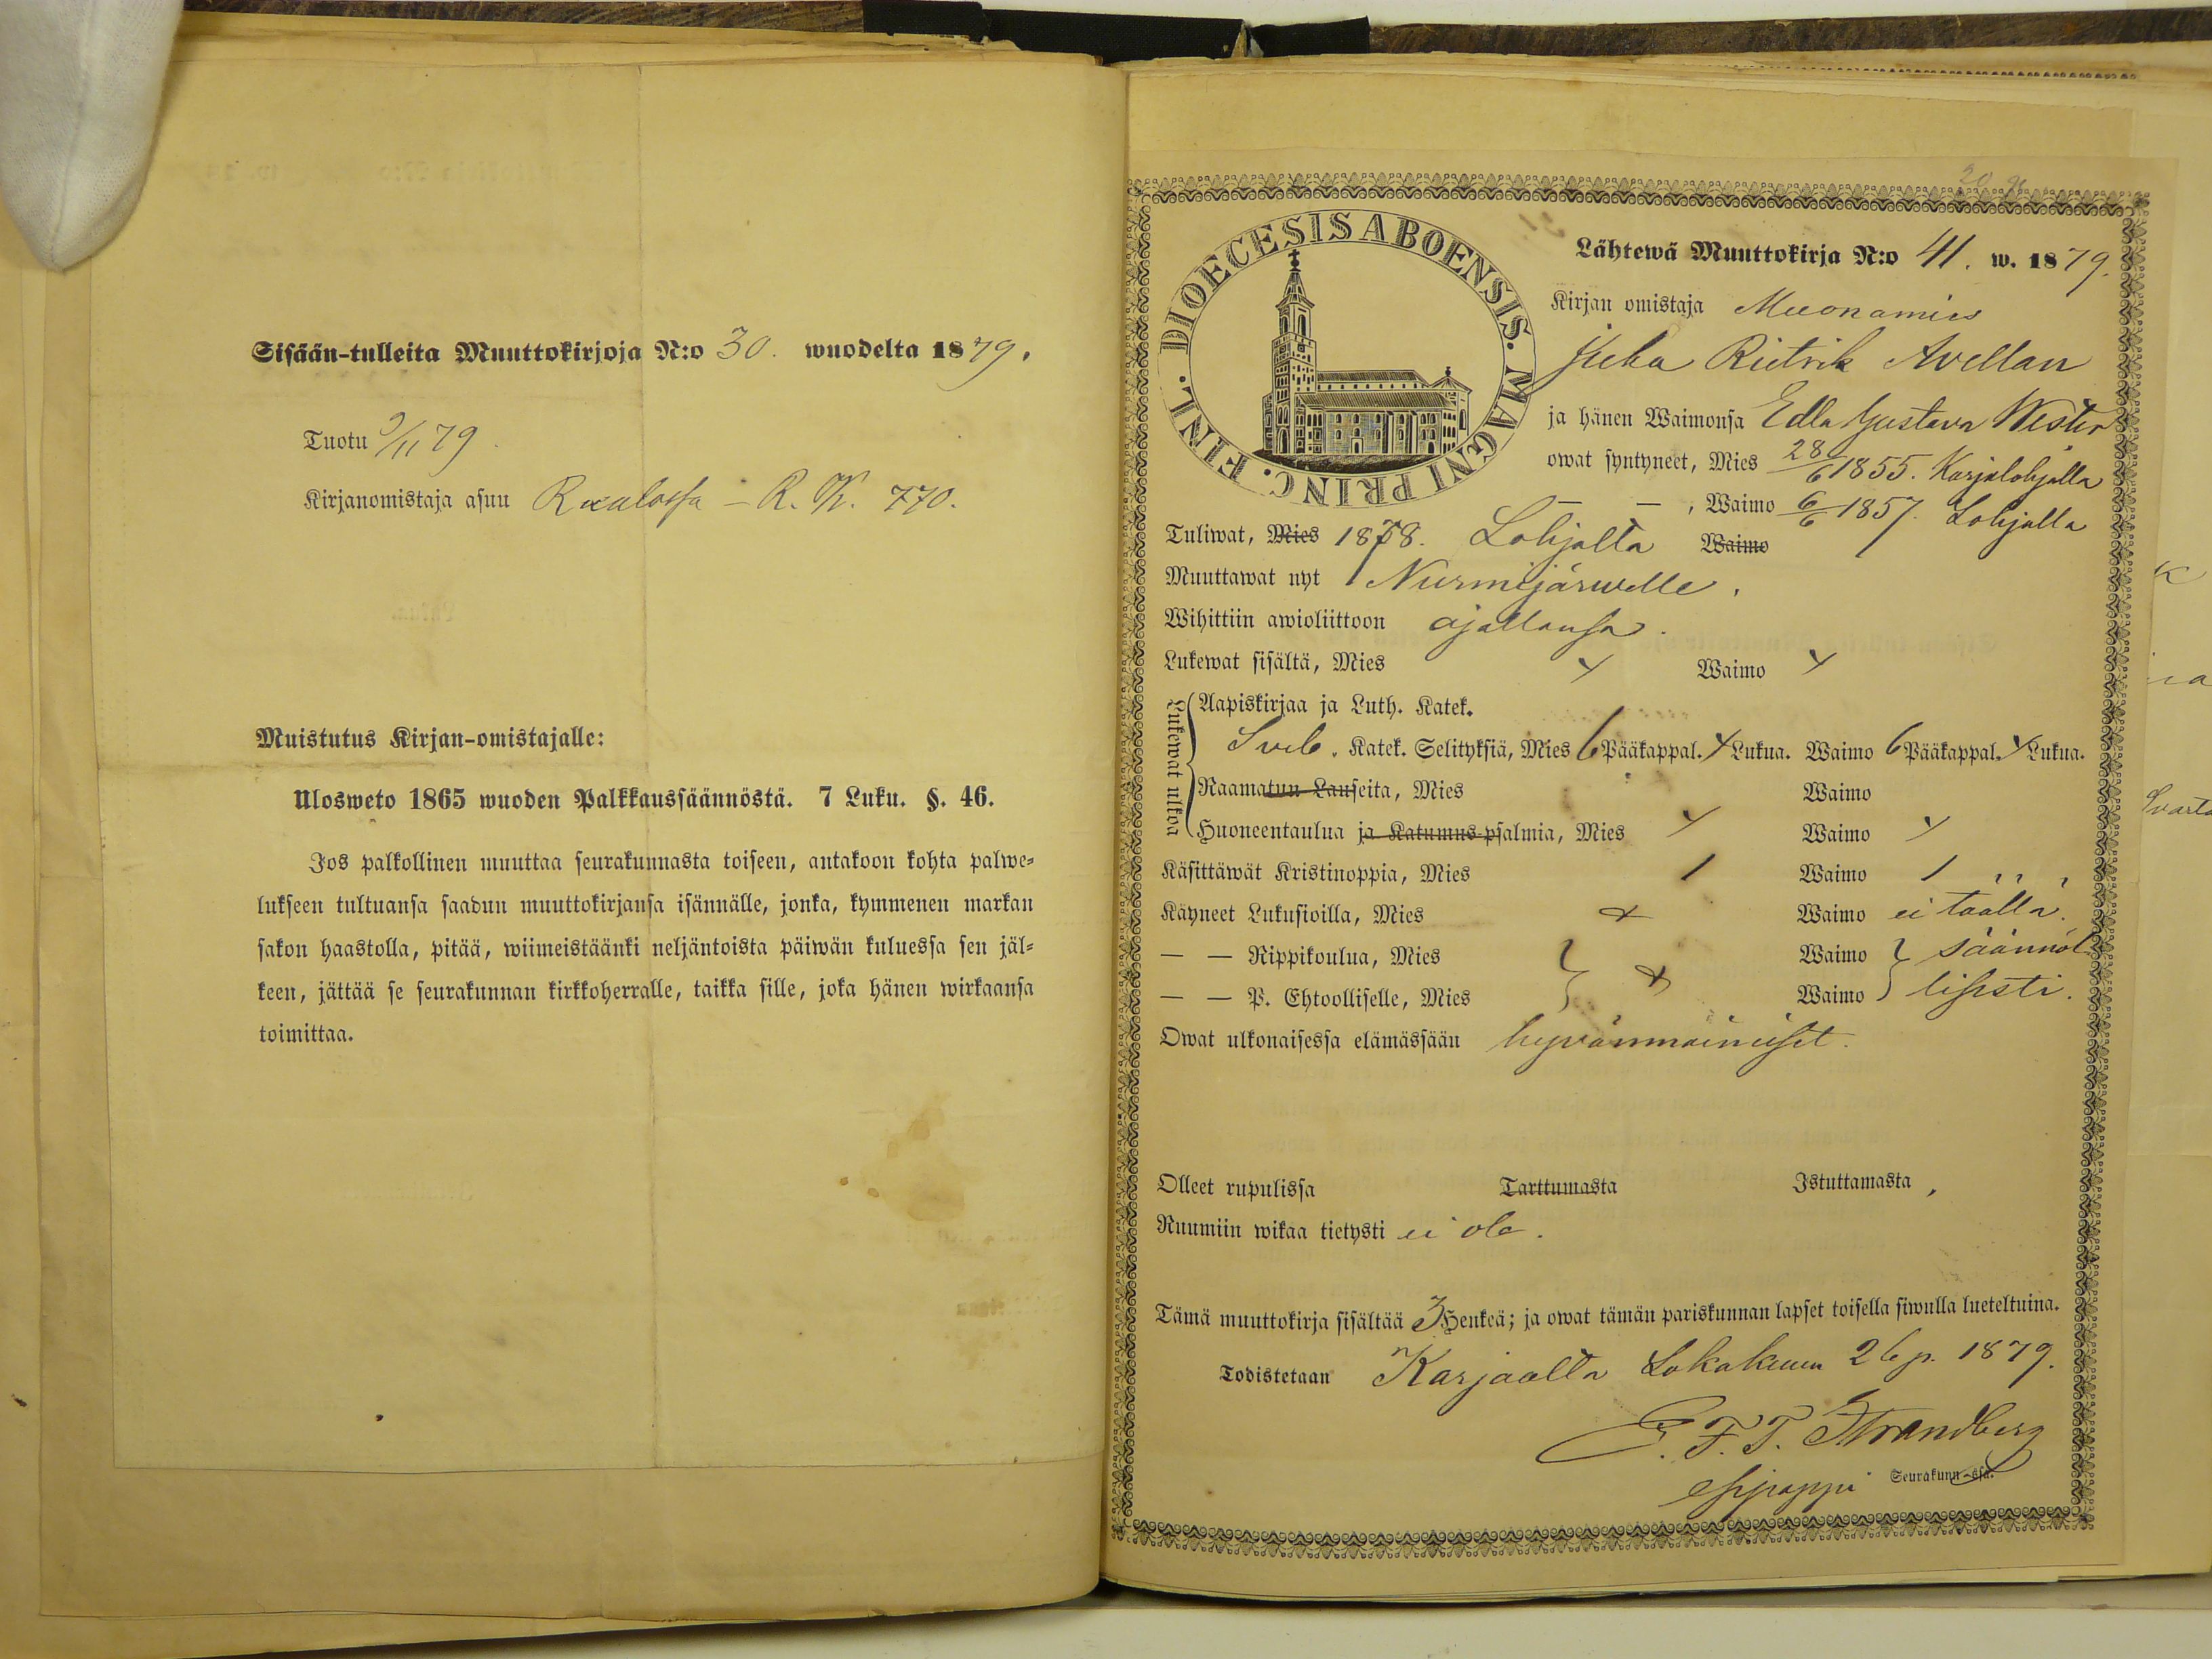 Sisään-tulleita Muuttokirjoja N:o 30. wuodelta 1879.
Tuotu 9/11 79.
Kirjanomistaja asuu Raalassa – R. K. 770.
Muistutus Kirjan-omistajalle:
Ulosweto 1865 wuoden Palkkaussäännöstä. 7 Luku. §. 46.
Jos palkollinen muuttaa seurakunnasta toiseen, antakoon kohta palwe=
lukseen tultuansa saadun muuttokirjansa isännälle, jonka, kymmenen markan
sakon haastolla, pitää, wiimeistäänki neljäntoista päiwän kuluessa sen jäl=
keen, jättää se seurakunnan kirkkoherralle, taikka sille, joka hänen wirkaansa
toimittaa.
FINL. DIOECESIS ABOENSIS. MAGNI PRINC.
Lähtewä Muuttokirja N:o 41. w. 1879.
Kirjan omistaja Muonamies
Juha Rietrik Avellan
ja hänen Waimonsa Edla Gustava Wester
owat syntyneet, Mies 28/6 1855. Karjalohjalla
— — , Waimo 6/6 1857. Lohjalla
Tuliwat, Mies 1878. Lohjalta Waimo
Muuttawat nyt Nurmijärwelle.
Wihittiin awioliittoon ajallansa.
Lukewat sisältä, Mies Waimo
Lukewat ulkoa
Aapiskirjaa ja Luth. Katek.
Sveb. Katek. Selityksiä, Mies 6 Pääkappal. Lukua. Waimo 6 Pääkappal. Lukua.
Raamatun Lauseita, Mies Waimo
Huoneentaulua ja Katumus-psalmia, Mies Waimo
Käsittäwät Kristinoppia, Mies 1 Waimo 1
Käyneet Lukusioilla, Mies Waimo ei täällä.
— — Rippikoulua, Mies Waimo säännöl
— — P. Ehtoolliselle, Mies Waimo lisesti.
Owat ulkonaisessa elämässään hyvänmainiset.
Olleet rupulissa Tarttumasta Istuttamasta
Ruumiin wikaa tietysti ei ole.
Tämä muuttokirja sisältää 3 Henkeä; ja owat tämän pariskunnan lapset toisella siwulla lueteltuina.
Todistetaan Karjaalta Lokakuun 26 p. 1879.
E. F. T. Strandberg
Seurakunn-ssa.